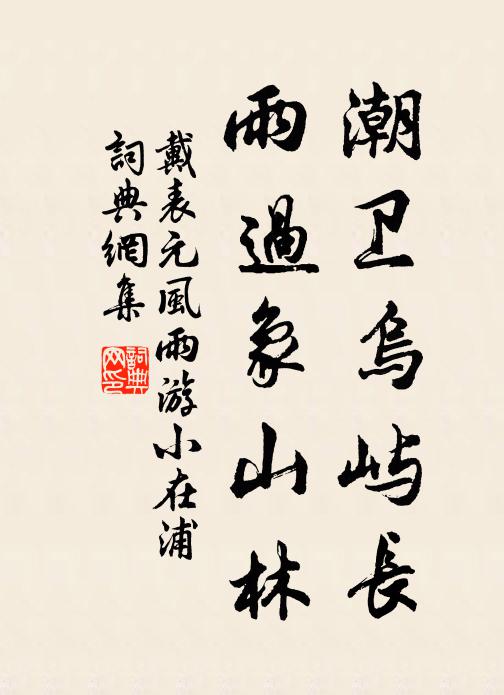 潮卫烏屿長
雨過象山林
戴表元風雨游小在浦
詞典網集
詞典网印